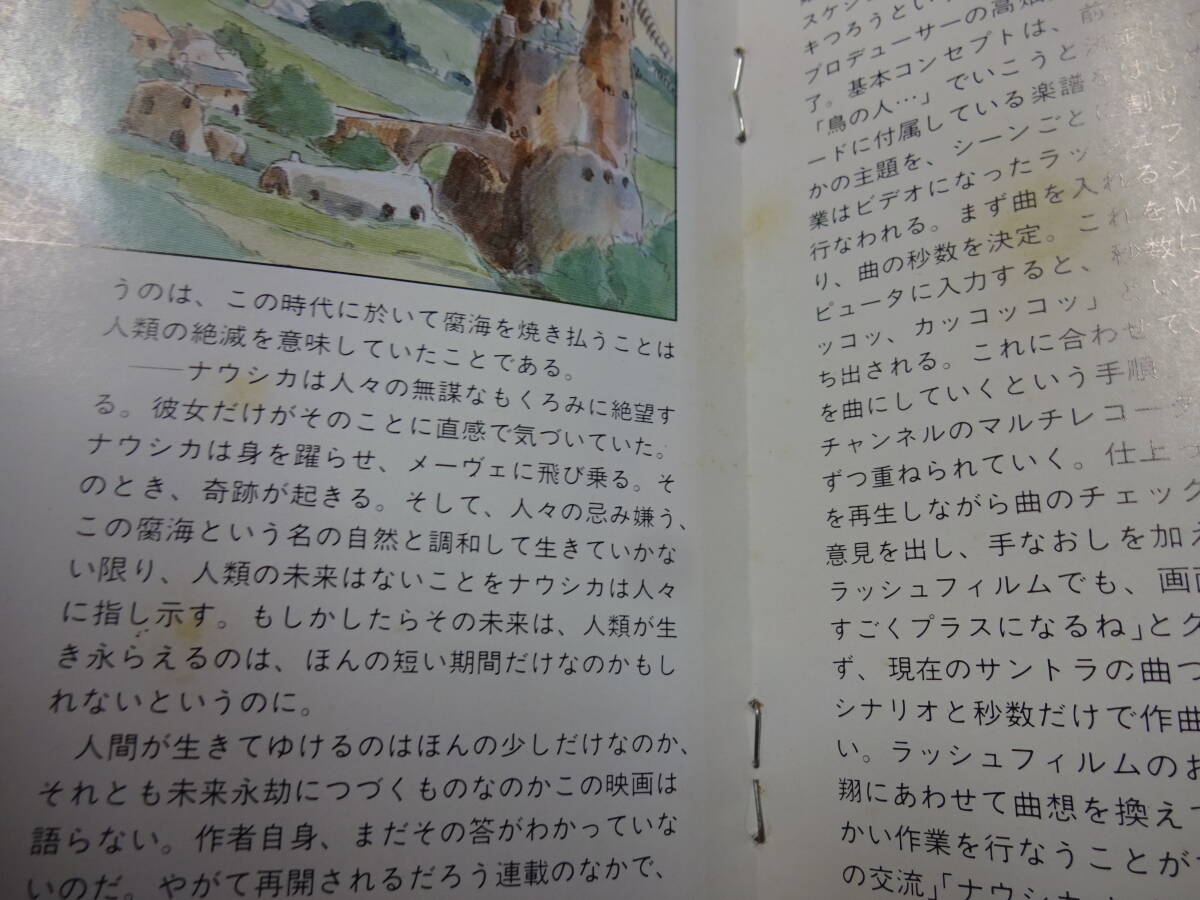 うのは、この時代に於いて腐海を焼き払うことは
人類の絶滅を意味していたことである。
──ナウシカは人々の無謀なもくろみに絶望す
る。彼女だけがそのことに直感で気づいていた。
ナウシカは身を躍らせ、メーヴェに飛び乗る。そ
のとき、奇跡が起きる。そして、人々の忌み嫌う、
この腐海という名の自然と調和して生きていかな
い限り、人類の未来はないことをナウシカは人々
に指し示す。もしかしたらその未来は、人類が生
き永らえるのは、ほんの短い期間だけなのかもし
れないというのに。
人間が生きてゆけるのはほんの少しだけなのか、
それとも未来永劫につづくものなのかこの映画は
語らない。作者自身、まだその答がわかっていな
いのだ。やがて再開されるだろう連載のなかで、
スケジ
キつろうとい
プロデューサーの高畑
了。基本コンセプトは、前
「鳥の人…」でいこうと
ードに付属している楽譜をはじ
かの主題を、シーンごとに割り
業はビデオになったラッ
行なわれる。まず曲を入れるシ
り、曲の秒数を決定。これをM
ピュータに入力すると、秒数に
ッコッ、カッコッコッ」とい
ち出される。これに合わせて
を曲にしていくという手順
チャンネルのマルチレコーダ
ずつ重ねられていく。仕上っ
を再生しながら曲のチェック
意見を出し、手なおしを加え
ラッシュフィルムでも、画面
すごくプラスになるね」とク
ず、現在のサントラの曲つ
シナリオと秒数だけで作曲
い。ラッシュフィルムのお
翔にあわせて曲想を換えて
かい作業を行なうことが
の交流」「ナウシカ